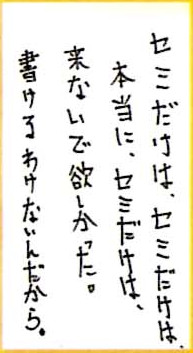 セミだけは、セミだけは、
本当に、セミだけは、
来ないで欲しかった。
書けるわけないんだから。